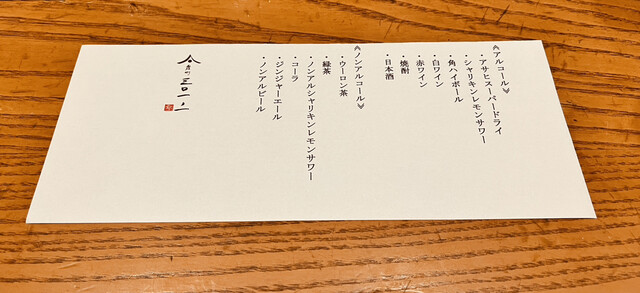 ≪アルコール≫
・アサヒスーパードライ
・シャリキンレモンサワー
・角ハイボール
・白ワイン
・赤ワイン
・焼酎
・日本酒
≪ノンアルコール≫
・ウーロン茶
・緑茶
・ノンアルシャリキンレモンサワー
・コーラ
・ジンジャーエール
・ノンアルビール